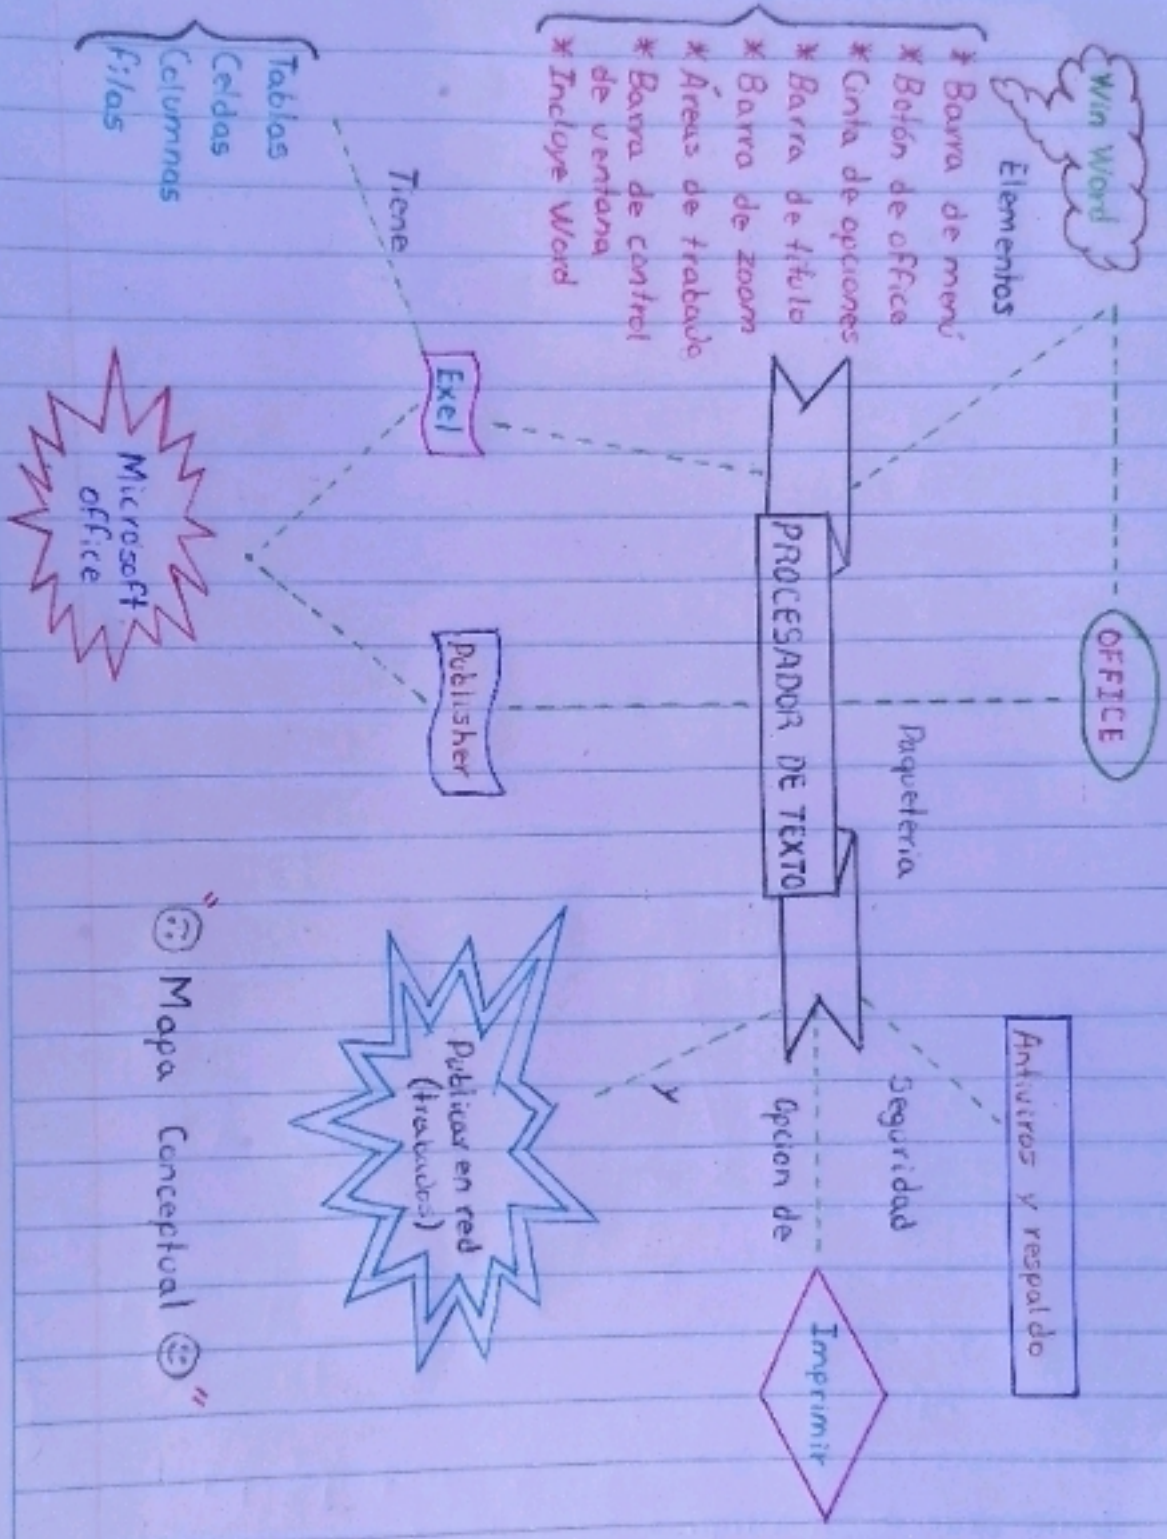 Win Word
OFFICE
Elementos
* Barra de menú
* Botón de office
* Cinta de opciones
* Barra de titulo
* Barra de zoom
* Áreas de trabado
* Barra de control
de ventana
* Incluye Word
Paqueteria
Antiviros y respaldo
Seguridad
PROCESADOR DE TEXTO
Opcion de
Imprimir
y
Publicar en red
(trabados)
Exel
Publisher
Tiene
Tablas
Celdas
Columnas
filas
Microsoft
office
" Mapa Conceptual "